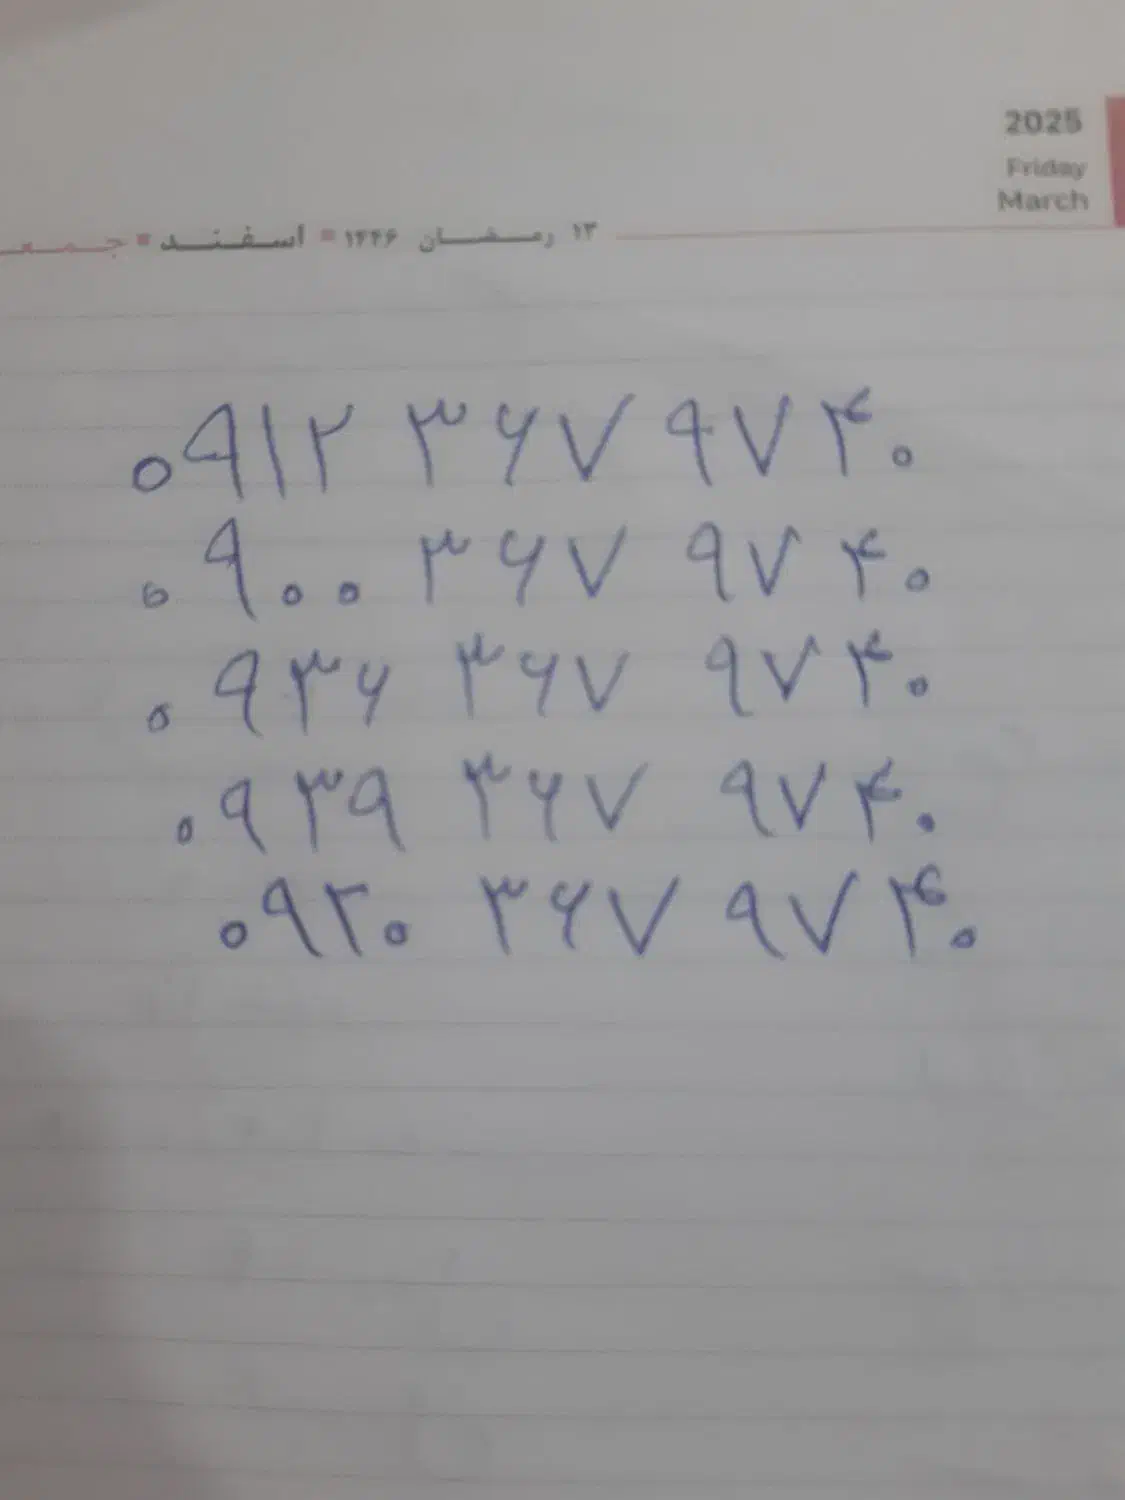 2025
Friday
March
۱۳ رمضان ۱۴۴۶ اسفند جمعـ
۰۹۱۲ ۳۶۷ ۹۷۴۰
۰۹۰۰ ۳۶۷ ۹۷۴۰
۰۹۳۶ ۳۶۷ ۹۷۴۰
۰۹۳۹ ۳۶۷ ۹۷۴۰
۰۹۲۰ ۳۶۷ ۹۷۴۰